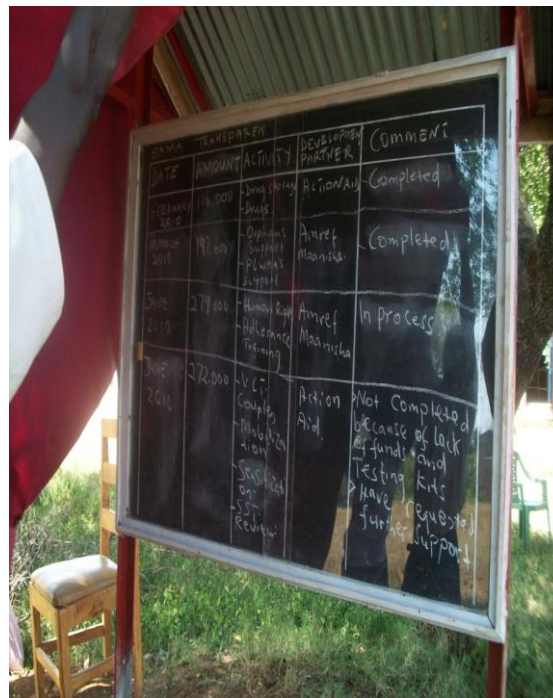 BAMA TRANSPAREN
DATE AMOUNT ACTIVITY DEVELOPMENT PARTNER COMMENT
FEBRUARY 2010
116,000
- Drug storage
- Drugs.
ACTIONAID
- Completed
MARCH 2010
- Orphans Support
- PLWHA's Support
Amref Maanisha
- Completed
JUNE 2010
279,000
- Human Right
- Adherance Training
Amref Maanisha
In process
JUNE 2010
272,000
- V.C.T.
Couples
- Mobiliza
tion
Action
Aid.
Review
Not Completed
because of lack
of funds and
Testing kits
Have requested
further support